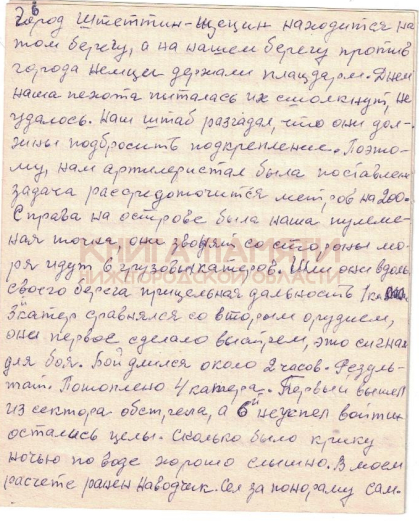 26
город Штеттин-Щецин находится на
том берегу, а на нашем берегу против
города немцы держали плацдарм. Днем
наша пехота питалась их столкнут, не
удалось. Наш штаб разгадал, что они дол-
жны подбросить подкрепление. Поэто-
му, нам артилеристам была поставлена
задача рассредоточится метров на 200.
Справа на острове была наша пулеме-
ная точка, они звонят со стороны мо-
ря идут 6 грузовых катеров. Шли они вдоль
своего берега прицельная дальность 1 км
катер сравнялся со вторым орудием,
они первое сделало выстрел, это сигнал
для боя. Бой длился около 2 часов. Резуль-
тат. Потоплено 4 катера. Первый вышел
из сектора обстрела, а 6й неуспел войти и
остались целы. Сколько было крику
ночью по воде хорошо слышно. В моем
расчете ранен наводчик. Сел за понораму сам.
КНИГА ПАМЯТИ
НИЖЕГОРОДСКОЙ ОБЛАСТИ